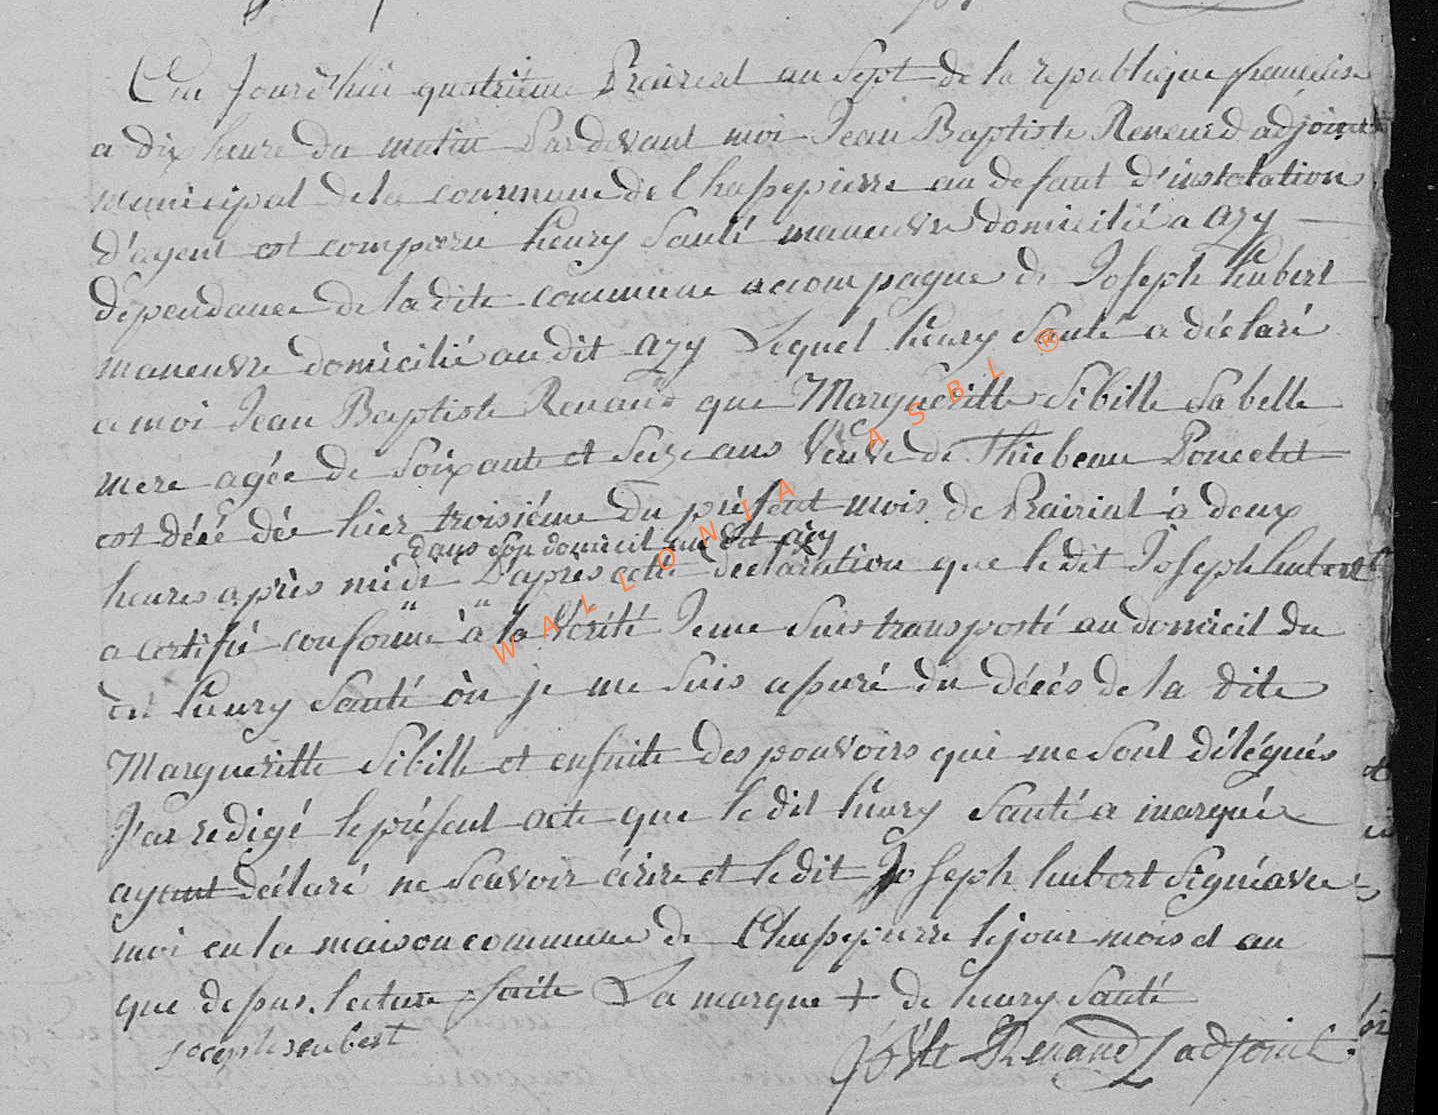 Ce Jourd'hui quatrieme Prairial an Sept de la republique francaise
a dix heure du matin Pardevant moi Jean Baptiste Renaud adjoint
municipal de la commune de Chassepierre au defaut d'instalation
d'agent est comparu henry Santé maneuvre domicilié a azy
dependance de la dite commune accompagné de Joseph hubert
maneuvre domicilié au dit azy Lequel henry Santé a déclaré
a moi Jean Baptiste Renaud que Margueritte Sibille Sa belle
mere agée de Soixante et Seize ans Veuve de Thiebeau Poncelet
est décédée hier troisiéme du présent mois de Prairial à deux
dans son domicil au dit azy
heures après midi D'après cette declaration que le dit Joseph hubert
a certifié conforme à la Vérité Je me Suis transporté au domicil du
dit henry Santé òu je me Suis assuré du décés de la dite
Margueritte Sibille et ensuite des pouvoirs qui me Sont délégués
J'ai redigé le présent acte que le dit henry Santé a marqué
ayant déclaré ne Scavoir écrire et le dit Joseph hubert Signé avec
moi en la maison commune de Chassepierre le jour mois et an
que depus. lecture faite La marque + de henry Santé
joseph heubert
JBte Renaud adjoint
WALLONIA ASBL ®